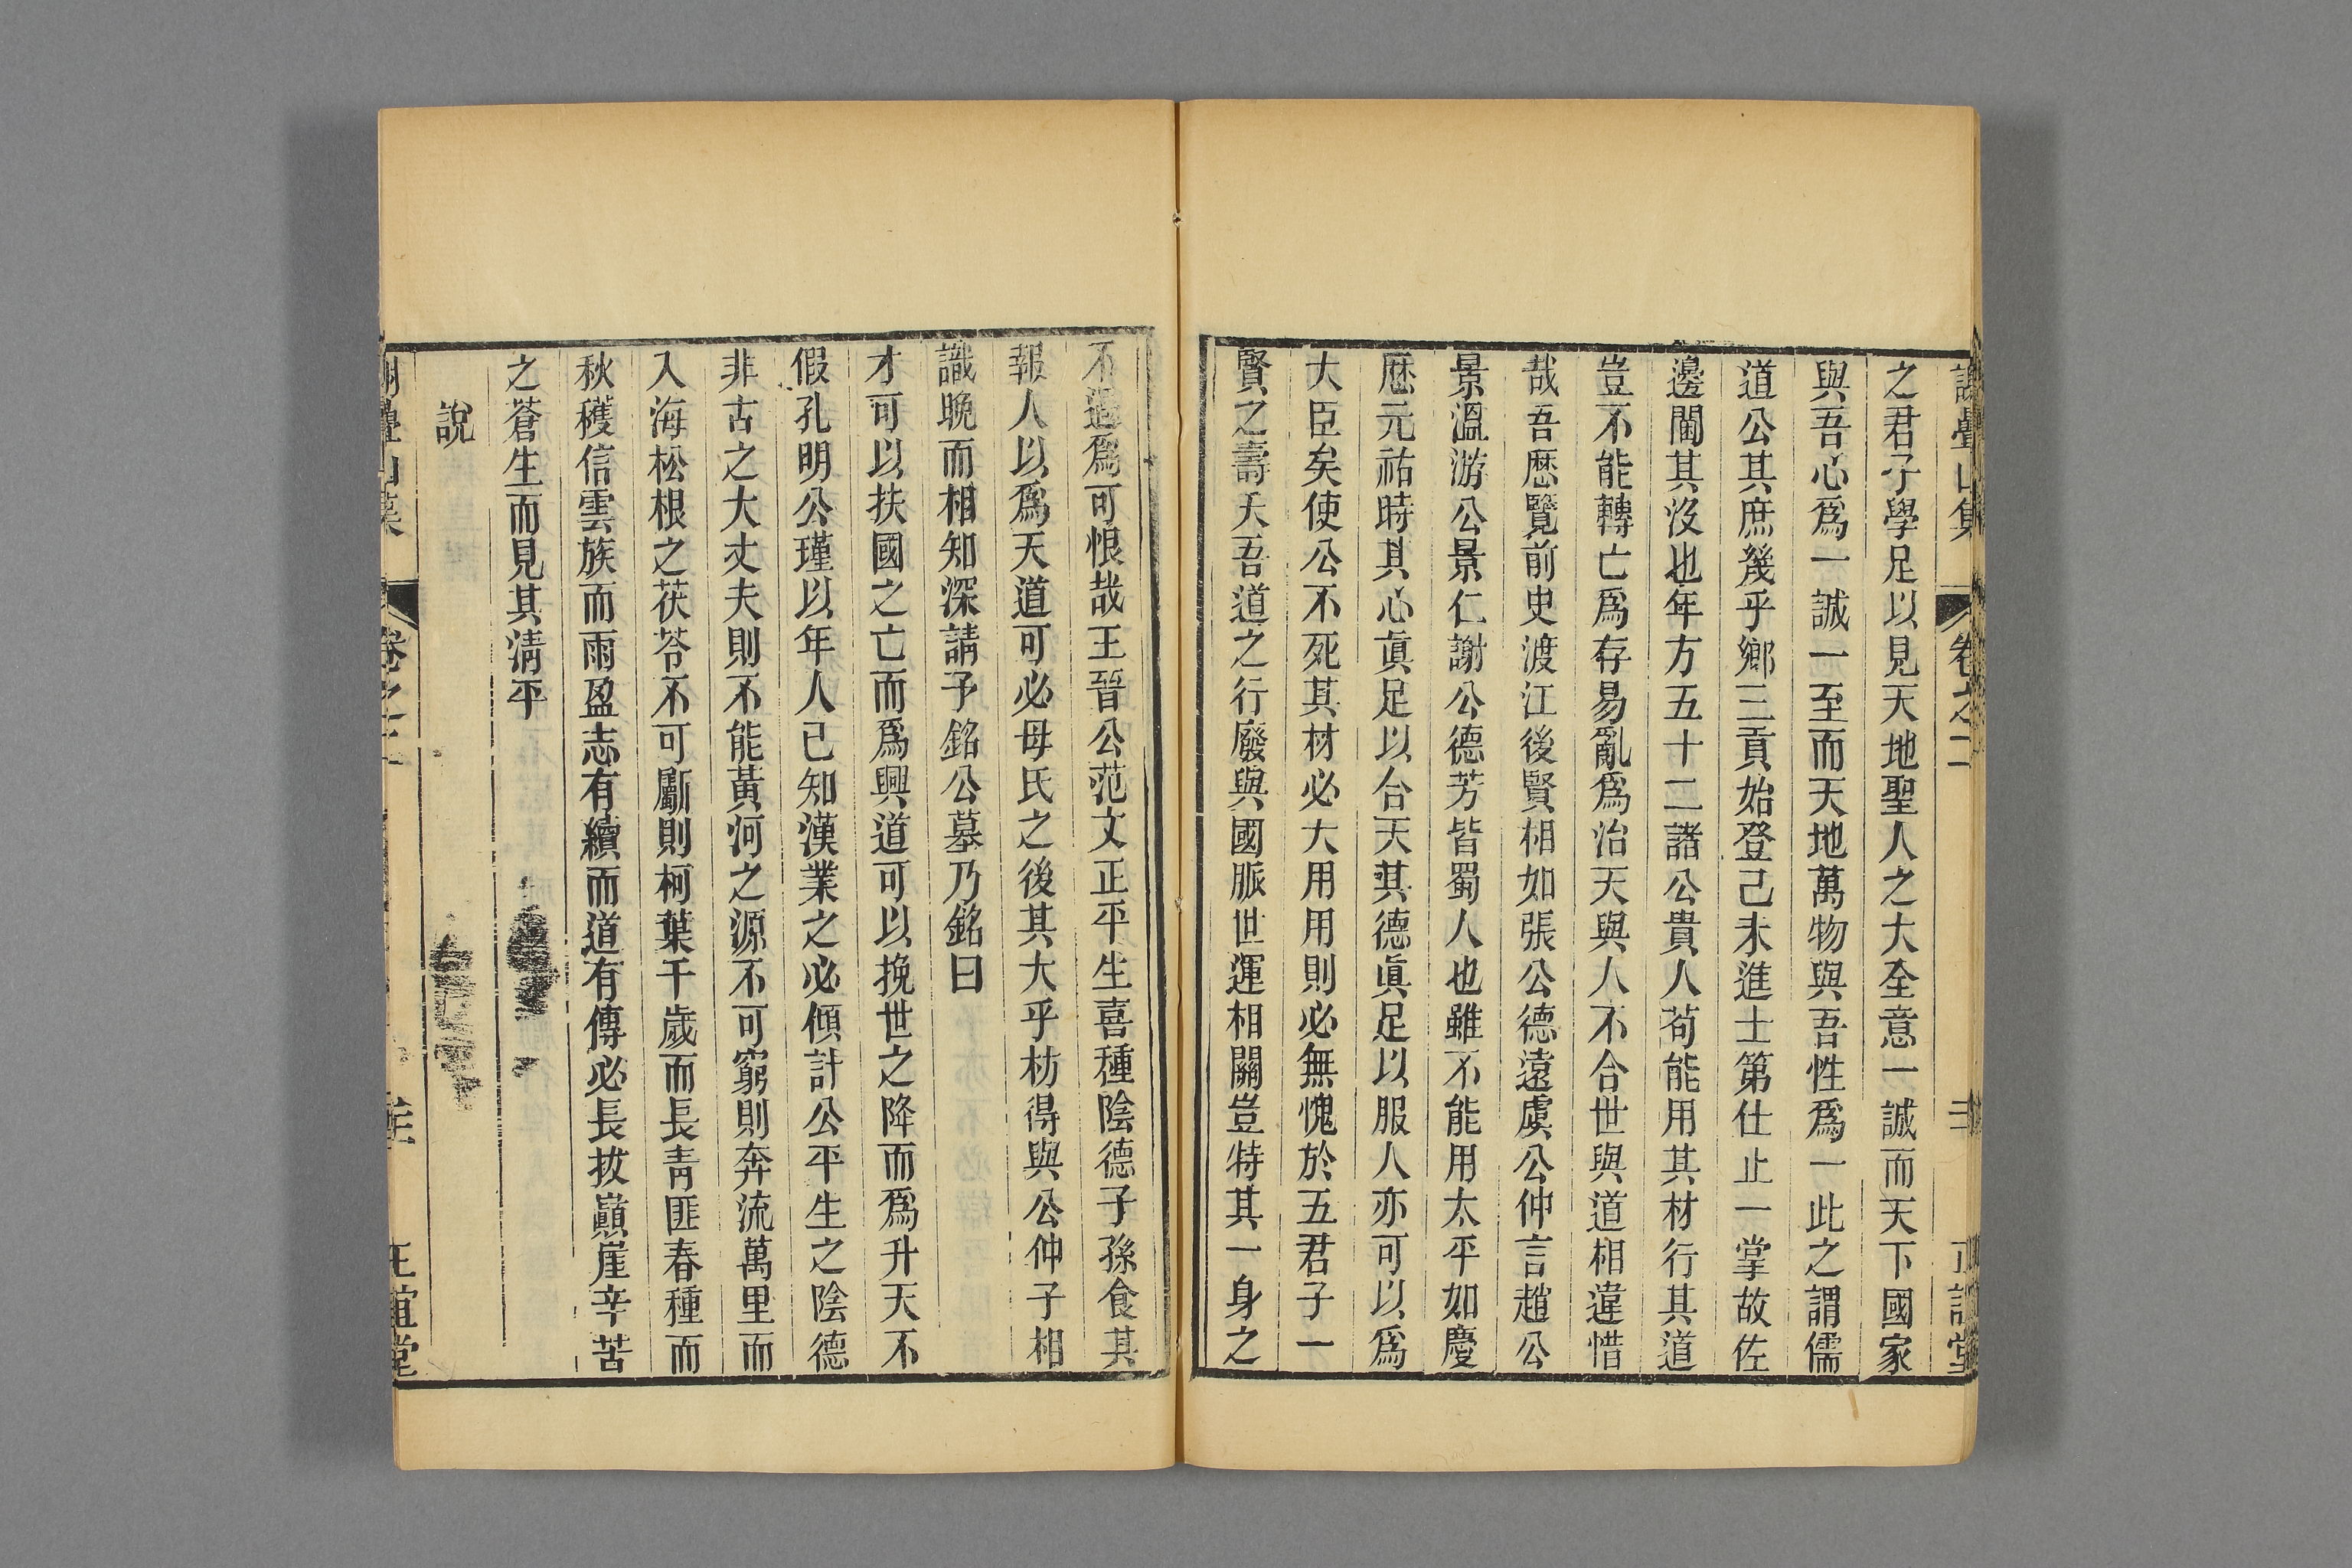 謝疊山集 卷之二 正誼堂
之君子學足以見天地聖人之大全意一誠而天下國家
與吾心爲一誠一至而天地萬物與吾性爲一此之謂儒
道公其庶幾乎鄉三貢始登己未進士第仕止一掌故佐
邊閫其沒也年方五十二諸公貴人苟能用其材行其道
豈不能轉亡爲存易亂爲治天與人不合世與道相違惜
哉吾歷覽前史渡江後賢相如張公德遠虞公仲言趙公
景溫游公景仁謝公德芳皆蜀人也雖不能用太平如慶
歷元祐時其心眞足以合天其德眞足以服人亦可以爲
大臣矣使公不死其材必大用用則必無愧於五君子一
賢之壽夭吾道之行廢與國脈世運相關豈特其一身之
不遇爲可恨哉王晉公范文正平生喜種陰德子孫食其
報人以爲天道可必母氏之後其大乎枋得與公仲子相
識晚而相知深請予銘公墓乃銘曰
才可以扶國之亡而爲興道可以挽世之降而爲升天不
假孔明公瑾以年人已知漢業之必傾計公平生之陰德
非古之大丈夫則不能黃河之源不可窮則奔流萬里而
入海松根之茯苓不可斸則柯葉千歲而長青匪春種而
秋穫信雲族而雨盈志有續而道有傳必長拔巓崖辛苦
之蒼生而見其淸平
說
疊山集 卷之二 正誼堂